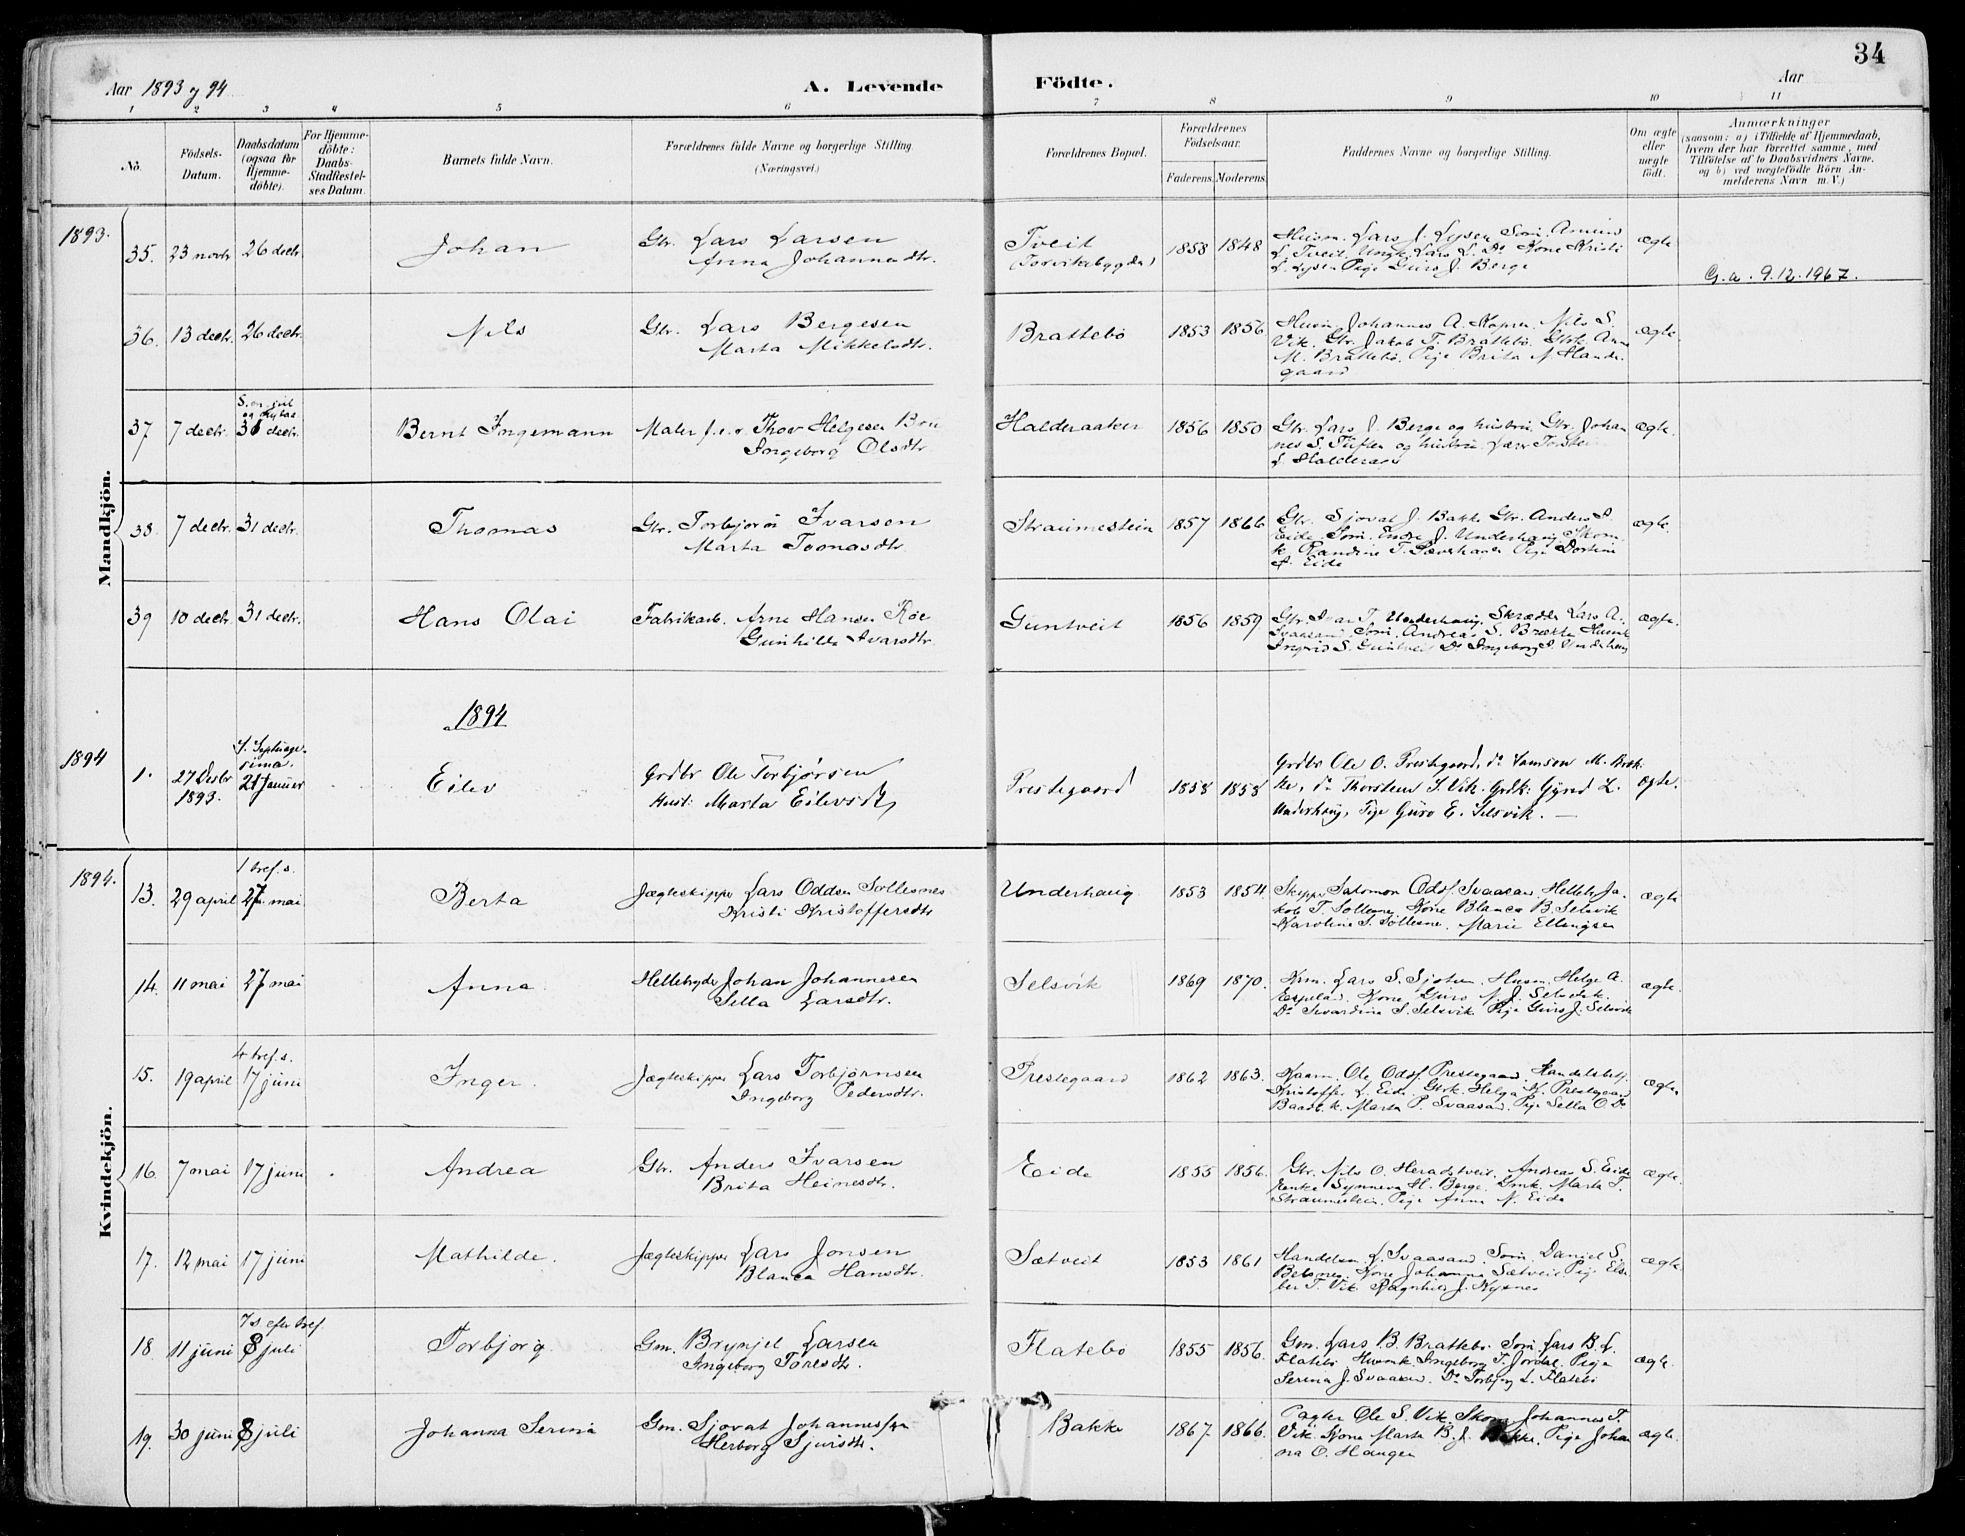 34
Aar 1893 og 94
A. Levende Födte.
Aar
1 2 3 4 5 6 7 8 9 10 11
No.
Födsels-Datum.
Daabsdatum (ogsaa for Hjemmedöbte).
For Hjemmedöbte: Daabs-Stadfestelses Datum.
Barnets fulde Navn.
Forældrenes fulde Navne og borgerlige Stilling (Næringsvei.)
Forældrenes Bopæl.
Forældrenes Födselsaar.
Faderens. Moderens.
Faddernes Navne og borgerlige Stilling.
Om ægte eller uægte födt.
Anmærkninger
(saasom: a) i Tilfælde af Hjemmedaab,
hvem der har forrettet samme, med
Tilföielse af to Daabsvidners Navne.
og b) ved uægtefödte Börn Anmelderens Navn m. V.)
Mandkjön.
1893.
35. 23 novbr. 26 decbr. Johan Gbr. Lars Larsen
Anna Johannesdtr.
Tveit 1858 1848 ægte
L. Tveit. Ungk. Lars L. Do Kone Kristi
Pige Guro J. Berge
G. a. 9.12.1967.
36. 13 decbr. 26 decbr. Nils Gbr. Lars Bergesen
Marta Mikkelsdtr.
Brattebö 1853 1856 Johannes A. Nils S.
Vik. Gbr. Jakob T. Brattebö. Anna
M. Brattebö. Pige Brita N Hande-
gaard
ægte.
37 7 decbr. 31 decbr. Bernt Ingemann Maler Thor Helgesen
Ingeborg Olsdtr.
Halderaaker 1856 1850 Gbr. Lars J. Berge og hustru. Gbr. Johan
nes S. og hustru
ægte.
38. 7 decbr. 31 decbr. Thomas Gbr. Torbjörn Ivarsen
Marta Tomasdtr.
Straumestein 1857 1866 Gbr. Sjovat J. Bakke Gbr. Anders
Eide Sön. Endre J. Underhaug
Pige
Eide
ægte.
39 10 decbr. 31 decbr. Hans Olai Fabrikarb. Arne Hansen Röe
Gunhilde Ivarsdtr.
Guntveit 1856 1859 Gbr. Underhaug. Skrædder Lars A.
Svaasand Sön. Andreas S. Brække
Ingrid S. Guntveit Do Ingeborg Underhaug
ægte.
1894
1894
1. 27 Desbr 1893. S. Septuage-
sima.
21 Januer
Eilev Grdbr Ole Torbjörsen
Hust: Marta Eilevsdtr
Prestegaard 1858 1858 Grdbr Ole O. Prestegaard, do Samson M. Bræk-
ke, do Thorstein S. Vik. Grdk: Gjyred L.
Underhaug, Pige Guro E. Selsvik. —
ægte.
Kvindekjön.
1894.
13. 29 april 1 tref. s.
27 mai Berta Jægteskipper Lars Oddsen Sollesnes
Kristi Kristoffersdtr
Underhaug 1853 1854. Skipper Salomon Odsf. Svaasand, Helleb. Ja-
kob T. Sollesnes, Kone Blanca B. Selsvik
Karoline S. Sollesne. Marie Ellingsen
ægte
14. 11 mai 27 mai Anna Hellebryder Johan Johannesen
Sella Larsdtr.
Selsvik 1869 1870. Lars S. Husm. Helge A.
Espeland. Kone Guro N. J. Selsvik.
Do Sivardine S. Selsvik Pige Guro J. Selsvik
ægte.
15. 19 april 4 tref. s.
17 juni Inger. Jægteskipper Lars Torbjörnsen
Ingeborg Pedersdtr.
Prestegaard 1862 1863. Kaarm. Ole Odsf Prestegaard. Handelsbetj.
Kristoffer L. Eide. Gbrk. Helga Prestegaard
Marta P. Svaasand. Pige Sella O. Do
ægte.
16. 7 mai 17 juni Andrea Gbr. Anders Ivarsen
Brita Heinesdtr.
Eide 1855 1856. Gbr. Nils O. Heradstveit. Andreas S. Eide
Enke Synneva H. Berge. Gmk. Marta T.
Straumestein. Pige Anna N. Eide
ægte.
17. 12 mai 17 juni Mathilde. Jægteskipper Lars Jonsen
Blanca Hansdtr.
Sætveit 1853 1861 Handelsm. L. Svaasand. Sön. Daniel S.
Kone Johanna Sætveit. Pige Else
T. Vik. Ragnhild J.
ægte.
18. 11 juni 7 s. efter tref.
8 juli Torbjorg. Gm. Brynjel Larsen
Ingeborg Toresdtr.
Flatebö 1855 1856. Gm. Lars B. Brattebö. Sön Lars B. L.
Flatebö Husmk. Ingeborg T. Jordal. Pige
Serina J. Svaasand. Do Torbjorg L. Flatebö
ægte.
19. 30 juni 8 juli Johanna Serina Gm. Sjovat Johannessen
Herborg Sjursdtr.
Bakke 1867 1866. Pagter Ole S. Vik. Skom. Johannes T.
Vik. Kone Marta B. J. Bakke, Pige Johan
na O. Haugen
ægte.